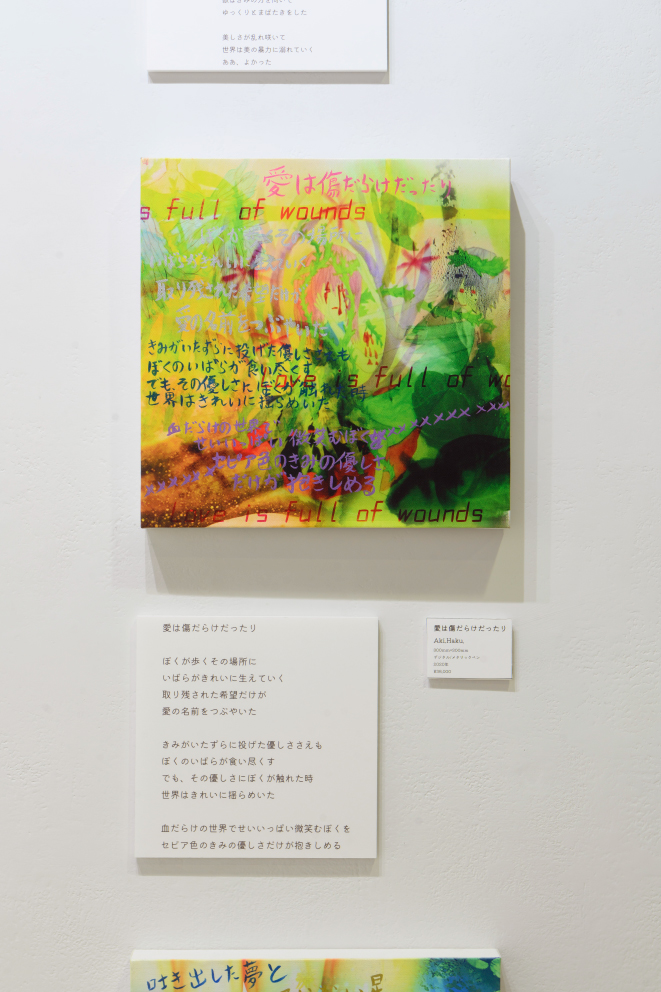 ゆっくりとまばたきをした
美しさが乱れ咲いて
世界は美の暴力に溺れていく
ああ、よかった
愛は傷だらけだったり
s full of wounds
取り残された希望だけが
愛の名前をつぶやいた
きみがいたずらに投げた優しささえも
ぼくのいばらが食い尽くす
love is full of wo
でも、その優しさにぼくが触れた時
世界はきれいに揺らめいた
血だらけの世界で
せいいっぱい微笑むぼくを
セピア色のきみの優しさ
だけが抱きしめる
love is full of wounds
愛は傷だらけだったり
ぼくが歩くその場所に
いばらがきれいに生えていく
取り残された希望だけが
愛の名前をつぶやいた
きみがいたずらに投げた優しささえも
ぼくのいばらが食い尽くす
でも、その優しさにぼくが触れた時
世界はきれいに揺らめいた
血だらけの世界でせいいっぱい微笑むぼくを
セピア色のきみの優しさだけが抱きしめる
愛は傷だらけだったり
Aki.Haru.
吐き出した夢と